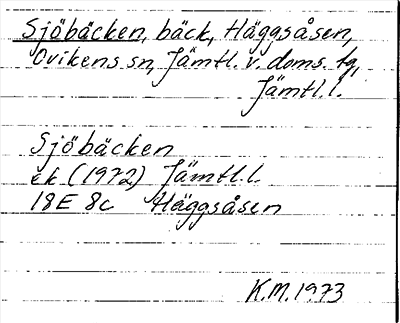 Sjöbäcken, bäck, Häggsåsen,
Ovikens sn, Jämtl. v. doms. tg,
Jämtl.l.
Sjöbäcken
ek (1972) Jämtl.l.
18E 8c Häggsåsen
K.M. 1973